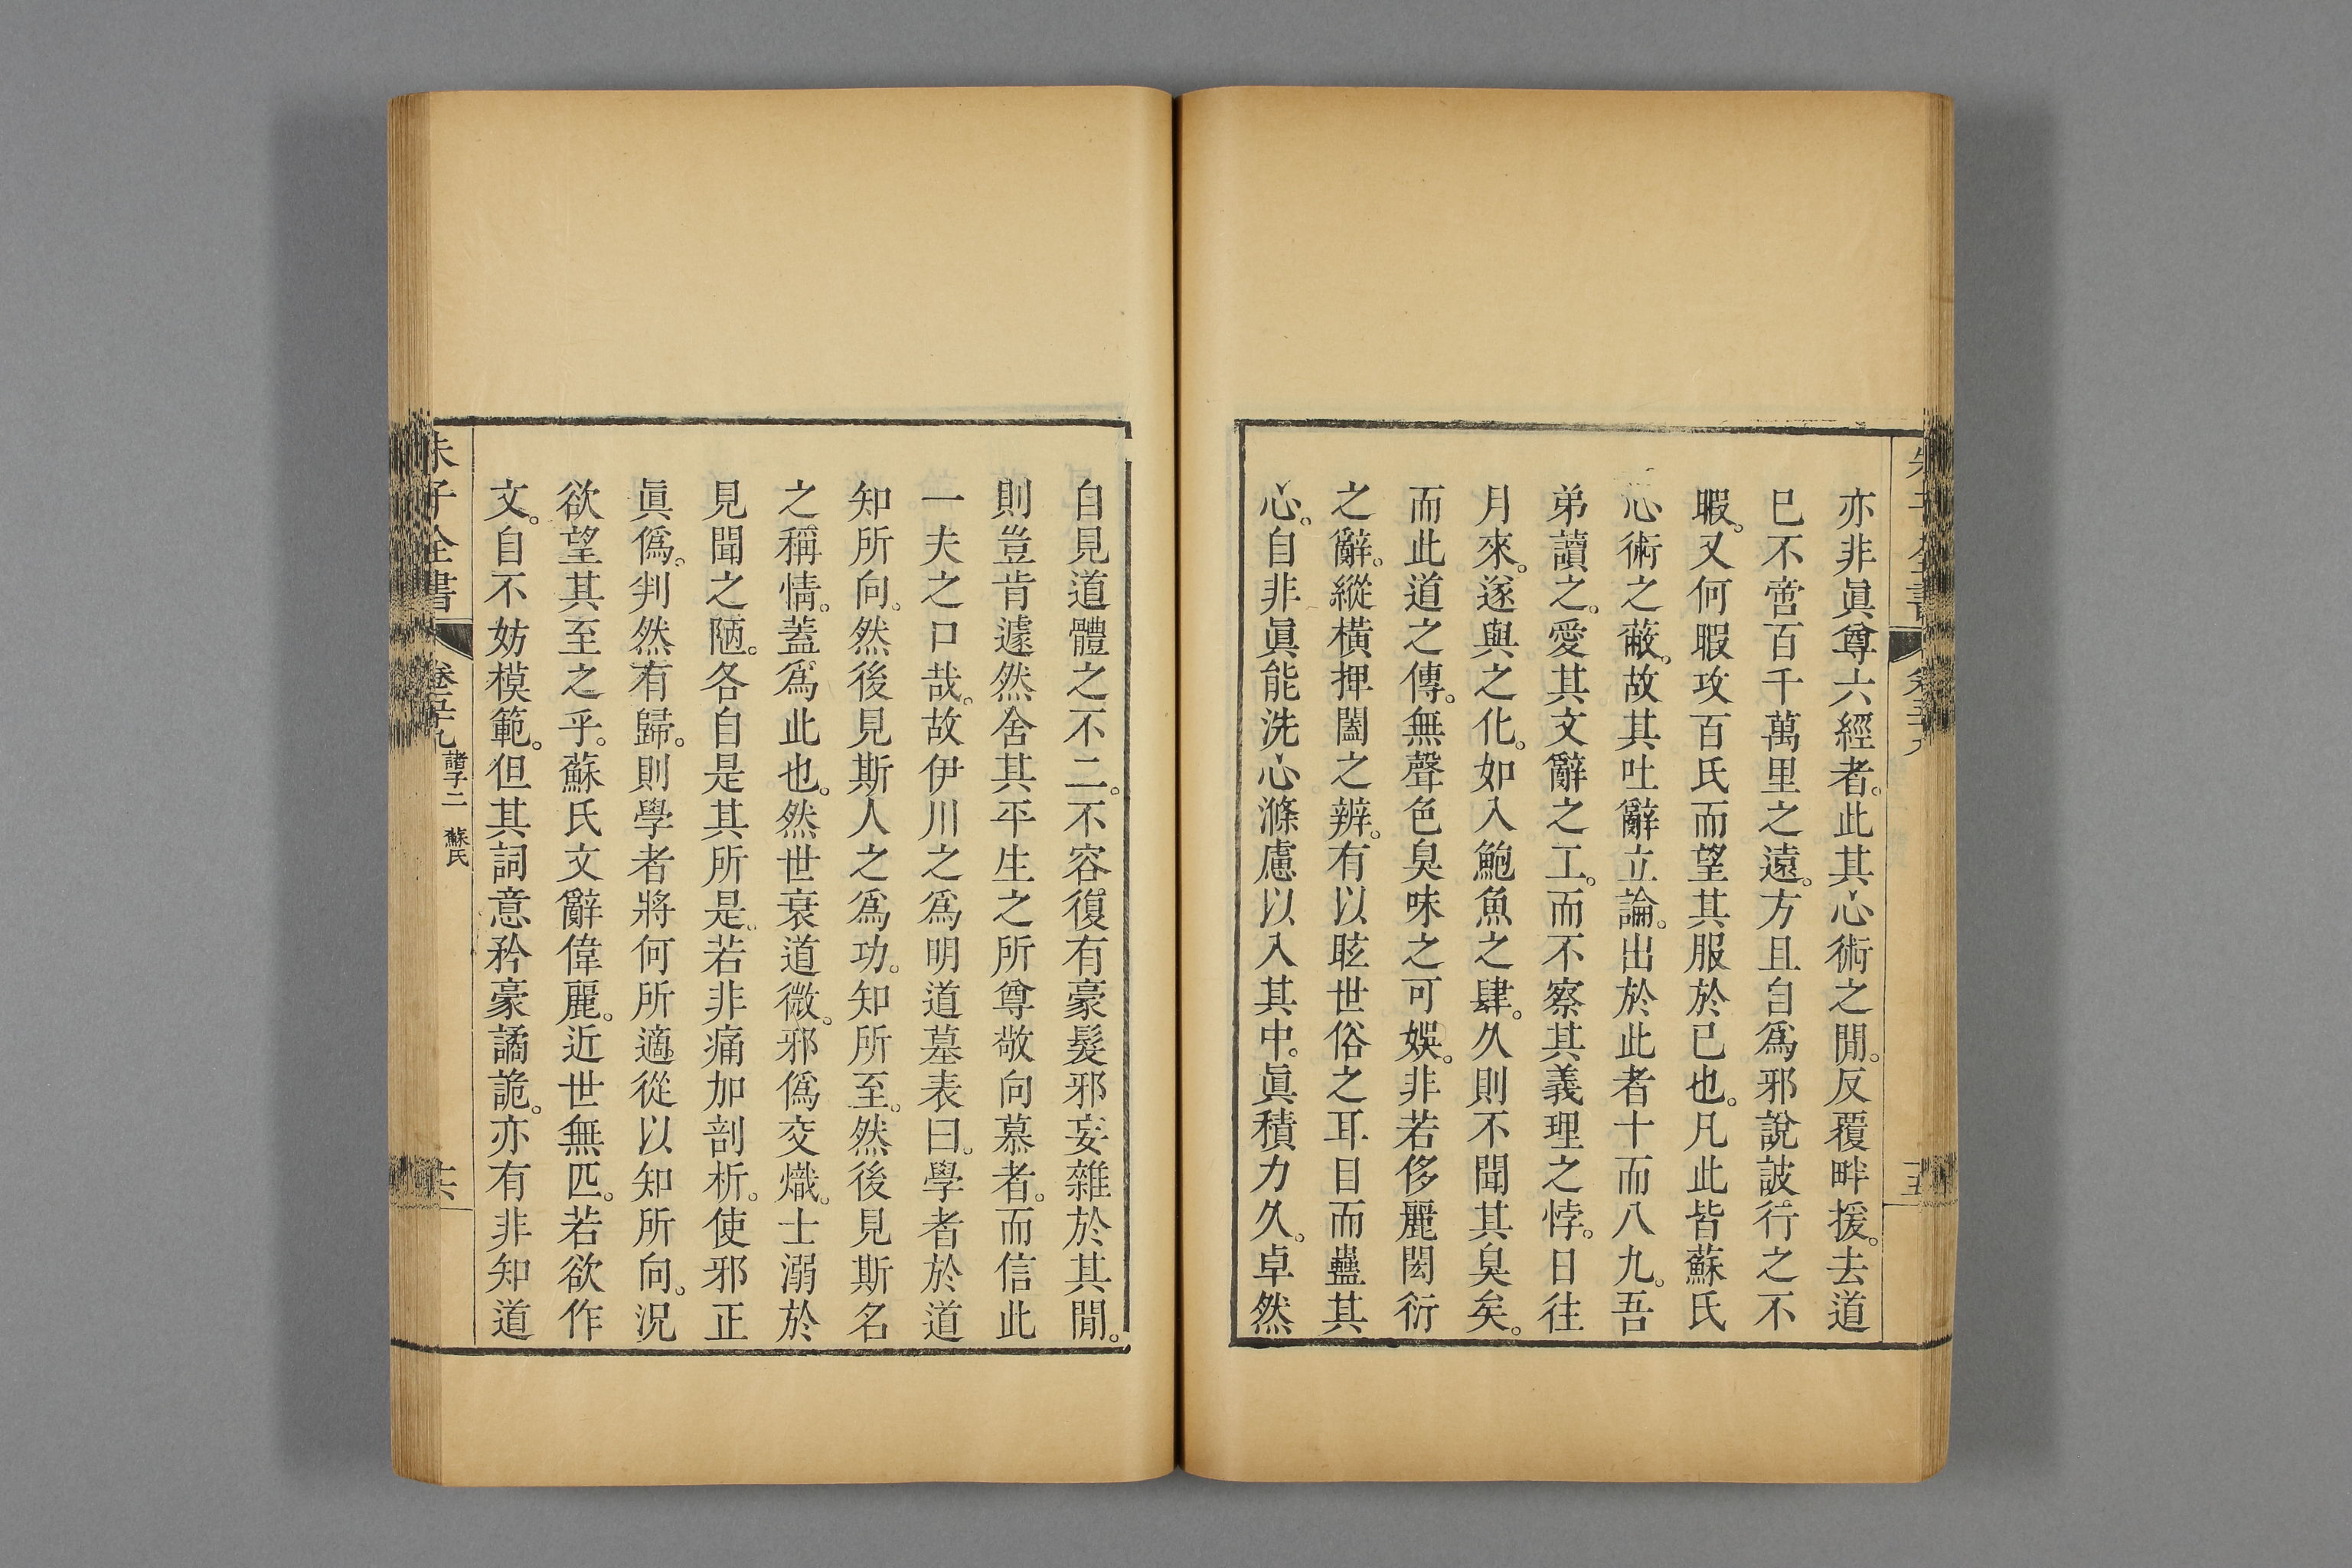 亦非眞尊六經者。此其心術之閒。反覆畔援。去道
巳不啻百千萬里之遠。方且自爲邪說詖行之不
暇。又何暇攻百氏而望其服於巳也。凡此皆蘇氏
心術之蔽。故其吐辭立論。出於此者十而八九。吾
弟讀之。愛其文辭之工。而不察其義理之悖。日往
月來。遂與之化。如入鮑魚之肆。久則不聞其臭矣。
而此道之傳。無聲色臭味之可娛。非若侈麗閎衍
之辭。縱橫捭闔之辨。有以眩世俗之耳目而蠱其
心。自非眞能洗心滌慮以入其中。眞積力久。卓然
自見道體之不二。不容復有豪髮邪妄雜於其閒。
則豈肯遽然舍其平生之所尊敬向慕者。而信此
一夫之口哉。故伊川之爲明道墓表曰。學者於道
知所向。然後見斯人之爲功。知所至。然後見斯名
之稱情。蓋爲此也。然世衰道微。邪僞交熾。士溺於
見聞之陋。各自是其所是。若非痛加剖析。使邪正
眞僞。判然有歸。則學者將何所適從以知所向。況
欲望其至之乎。蘇氏文辭偉麗。近世無匹。若欲作
文。自不妨模範。但其詞意矜豪譎詭。亦有非知道
朱子全書 卷五十九 諸子二 蘇氏